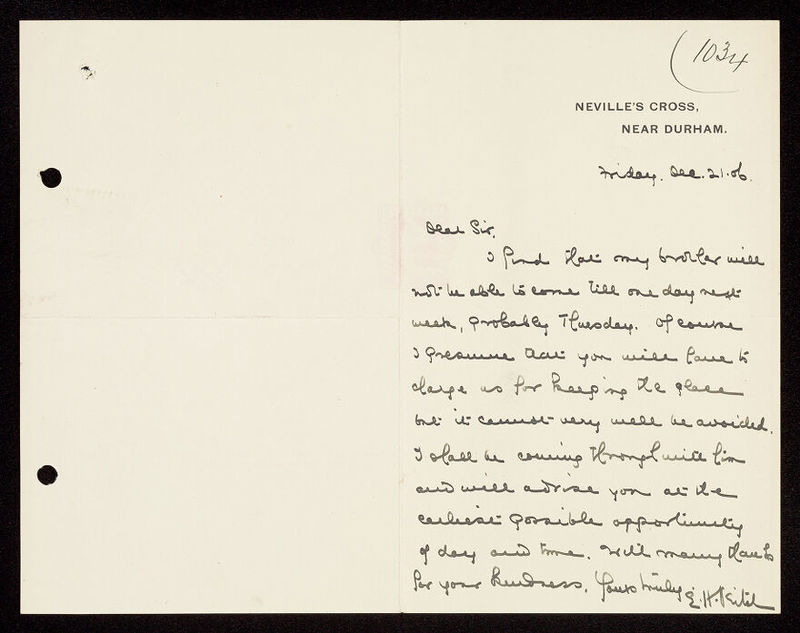 (1034
NEVILLE'S CROSS,
NEAR DURHAM.
Friday. Dec. 21.06.
Dear Sir,
I find that my brother will
not be able to come till one day next
week, probably Thursday. Of course
I presume that you will have to
charge us for keeping the place
but it cannot very well be avoided.
I shall be coming through with him
and will advise you at the
earliest possible opportunity
of day and time. With many thanks
for your kindness. Yours truly
E. H.